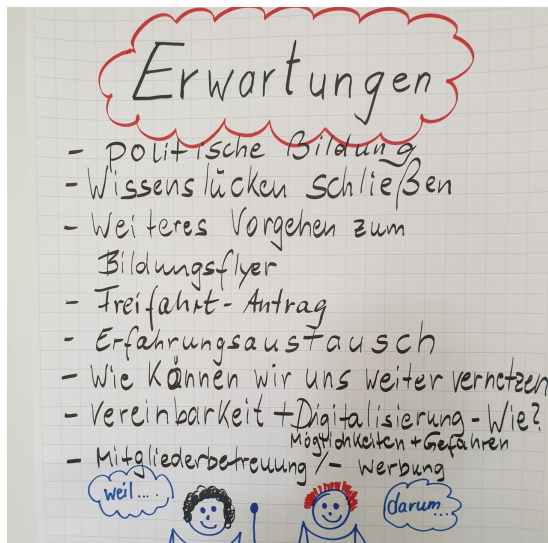 Erwartungen
- politische Bildung
- Wissenslücken schließen
- Weiteres Vorgehen zum
Bildungsflyer
- Freifahrt-Antrag
- Erfahrungsaustausch
- Wie können wir uns weiter vernetzen
- Vereinbarkeit + Digitalisierung - Wie?
Möglichkeiten + Gefahren
- Mitgliederbetreuung /- werbung
weil....
darum...